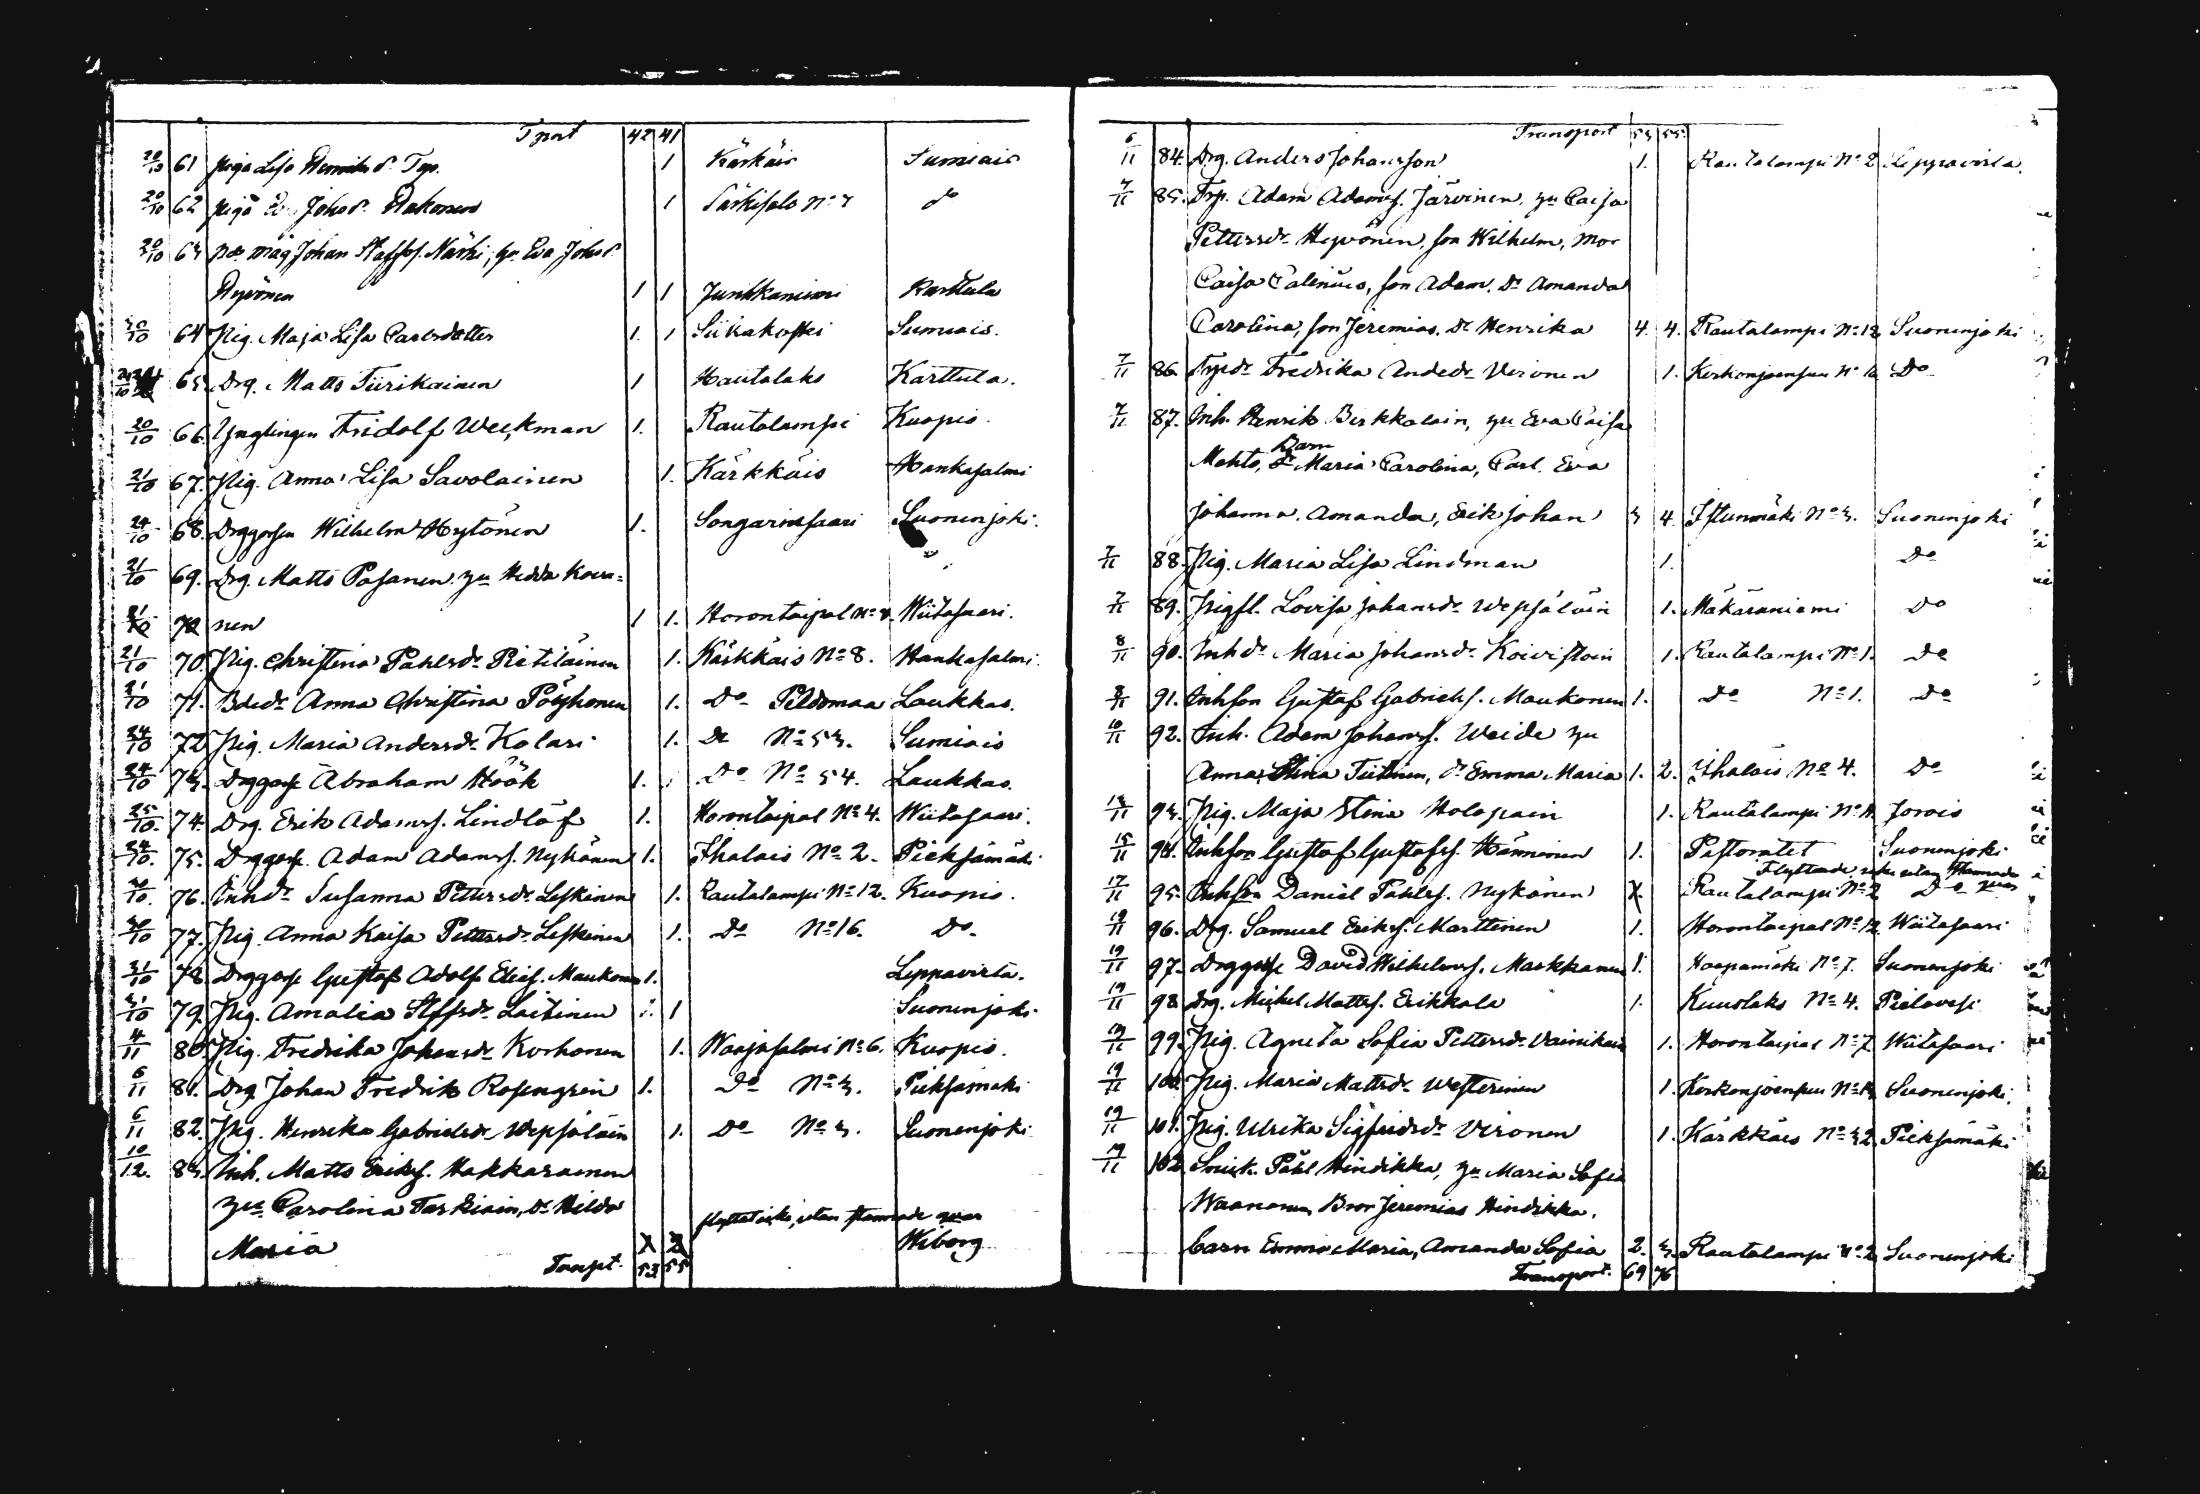 Tport 42 41
20/10 61 piga Lisa Henriks d. Trp. 1 Kärkäis Sumiais
20/10 62 piga Johs d. Hakonen 1 Särkisalo No 7 do
20/10 63 måg Johan Staffs. Närhi, hu Eva Johs d.
Hyvönen 1 1 Junkkaniemi Karttula
20/10 64 Pig. Maja Lisa Carlsdotter 1. 1 Siikakoski Sumiais.
65. Drg. Matts Tiirikainen 1 Hautolaks Karttula.
20/10 66. Ynglingen Fridolf Weckman 1. Rautalampi Kuopio.
21/10 67. Pig. Anna Lisa Savolainen 1. Kärkkäis Hankasalmi
24/10 68. Drggossen Wilhelm Hytönen 1. Songarinsaari Suonenjoki.
21/10 69. Drg. Matts Pasanen hu Hedda Kova=
nen 1 1. Horontaipal No 4. Wiitasaari.
21/10 70. Pig. Christina Påhlsdr. Pietiläinen 1. Kärkkäis No 8. Hankasalmi.
21/10 71. Bdedr. Anna Christina Pöyhönen 1. Do Laukkas.
24/10 72. Pig. Maria Andersdr. Kolari 1. Do No 53. Sumiais
24/10 73. Drggosse Abraham Höök 1. Do No 54. Laukkas.
25/10. 74. Drg. Erik Adamss. Lindlöf 1. Horontaipal No 4. Wiitasaari.
24/10. 75. Drggosse Adam Adamss. Nykänen 1. Ihalais No 2. Pieksämäki
30/10. 76. Inhdr. Susanna Pettersdr. Leskinen 1. Rautalampi No 12. Kuopio.
30/10 77. Pig. Anna Kaisa Pettersdr. Leskinen 1. Do No 16. Do.
31/10 78. Drggosse Gustaf Adolf Elies. Maukonen 1. Leppävirta.
31/10 79. Pig. Amalia Staffsdr. Laitinen 1 Suonenjoki.
4/11 80. Pig. Fredrika Johansdr. Korhonen 1. Waajasalmi No 6. Kuopio.
6/11 81. Drg. Johan Fredrik Rosengrén 1. Do No 3. Pieksämäki
6/11 82. Pig. Henrika Gabrielsdr. Wepsäläin 1. Do No 3. Suonenjoki
10/12. 83. Inh. Matts Eriks. Hakkarainen
hu Carolina Tarkiain, dr. Hilda
flyttat icke, utan stannade qvar
Maria X 2 Wiborg
Transpt. 53 55
Transport 53 55
6/11 84. Drg. Anders Johansson 1. Rautalampi No 2 Leppävirta.
7/11 85. Trp. Adam Adamss. Järvinen, hu Caisa
Pettersdr. Hyvönen, son Wilhelm, mor
Caisa Calenius, son Adam. Dr. Amanda
Carolina, son Jeremias. Dr Henrika 4. 4. Rautalampi No 12 Suonenjoki
7/11 86. Trpdr. Fredrika Andsdr. Vironen 1. Kerkonjoensuu No 16 Do
7/11 87. Inh. Henrik Birkkalain, hu Eva Caisa
Barn
Mehto, Maria Carolina, Carl. Eva
Johanna. Amanda, Erik Johan 3 4. Istunmäki No 3. Suonenjoki
7/11 88. Pig. Maria Lisa Lindman 1. Do
7/11 89. Pigfl. Lovisa Johansdr. Wepsäläin 1. Mäkäräniemi Do
8/11 90. Inhdr. Maria Johansdr. Koivistoin 1. Rautalampi No 1. Do
8/11 91. Inhson Gustaf Gabriels. Maukonen 1. Do No 1. Do
10/11 92. Inh. Adam Johanss. Weide hu
Anna Stina Tiitinen, dr Emma Maria 1. 2. Ihalais No 4. Do
14/11 93. Pig. Maja Stina Holopain 1. Rautalampi No Jorois
15/11 94. Inhson Gustaf Gustafss. Hänninen 1. Pastoratet Suonenjoki
Flyttade icke utan stannade
17/11 95. Inhson Daniel Påhlss. Nykänen X Rautalampi No 2 Do qvar
19/11 96. Drg. Samuel Erikss. Marttinen 1. Horontaipal No 12 Wiitasaari
19/11 97. Drggosse David Wilhelmss. Markkanen 1. Haapamäki No 7. Suonenjoki
19/11 98. Drg. Michel Mattss. Erikkala 1. Kuuslaks No 4. Pielavesi
19/11 99. Pig. Agneta Sofia Pettersdr. Vainikain 1. Horontaipal No 7 Wiitasaari
19/11 100. Pig. Maria Mattsdr. Westerinen 1. Kerkonjoensuu No 14 Suonenjoki.
19/11 101. Pig. Ulrika Sigfridsdr. Vironen 1. Kärkkäis No 32 Pieksämäki
19/11 102. Påhl Hindikka, hu Maria Sofia
Waananen Bror Jeremias Hindikka.
barn Emma Maria, Amanda Sofia 2. 3. Rautalampi No 2 Suonenjoki
Transport. 69 76